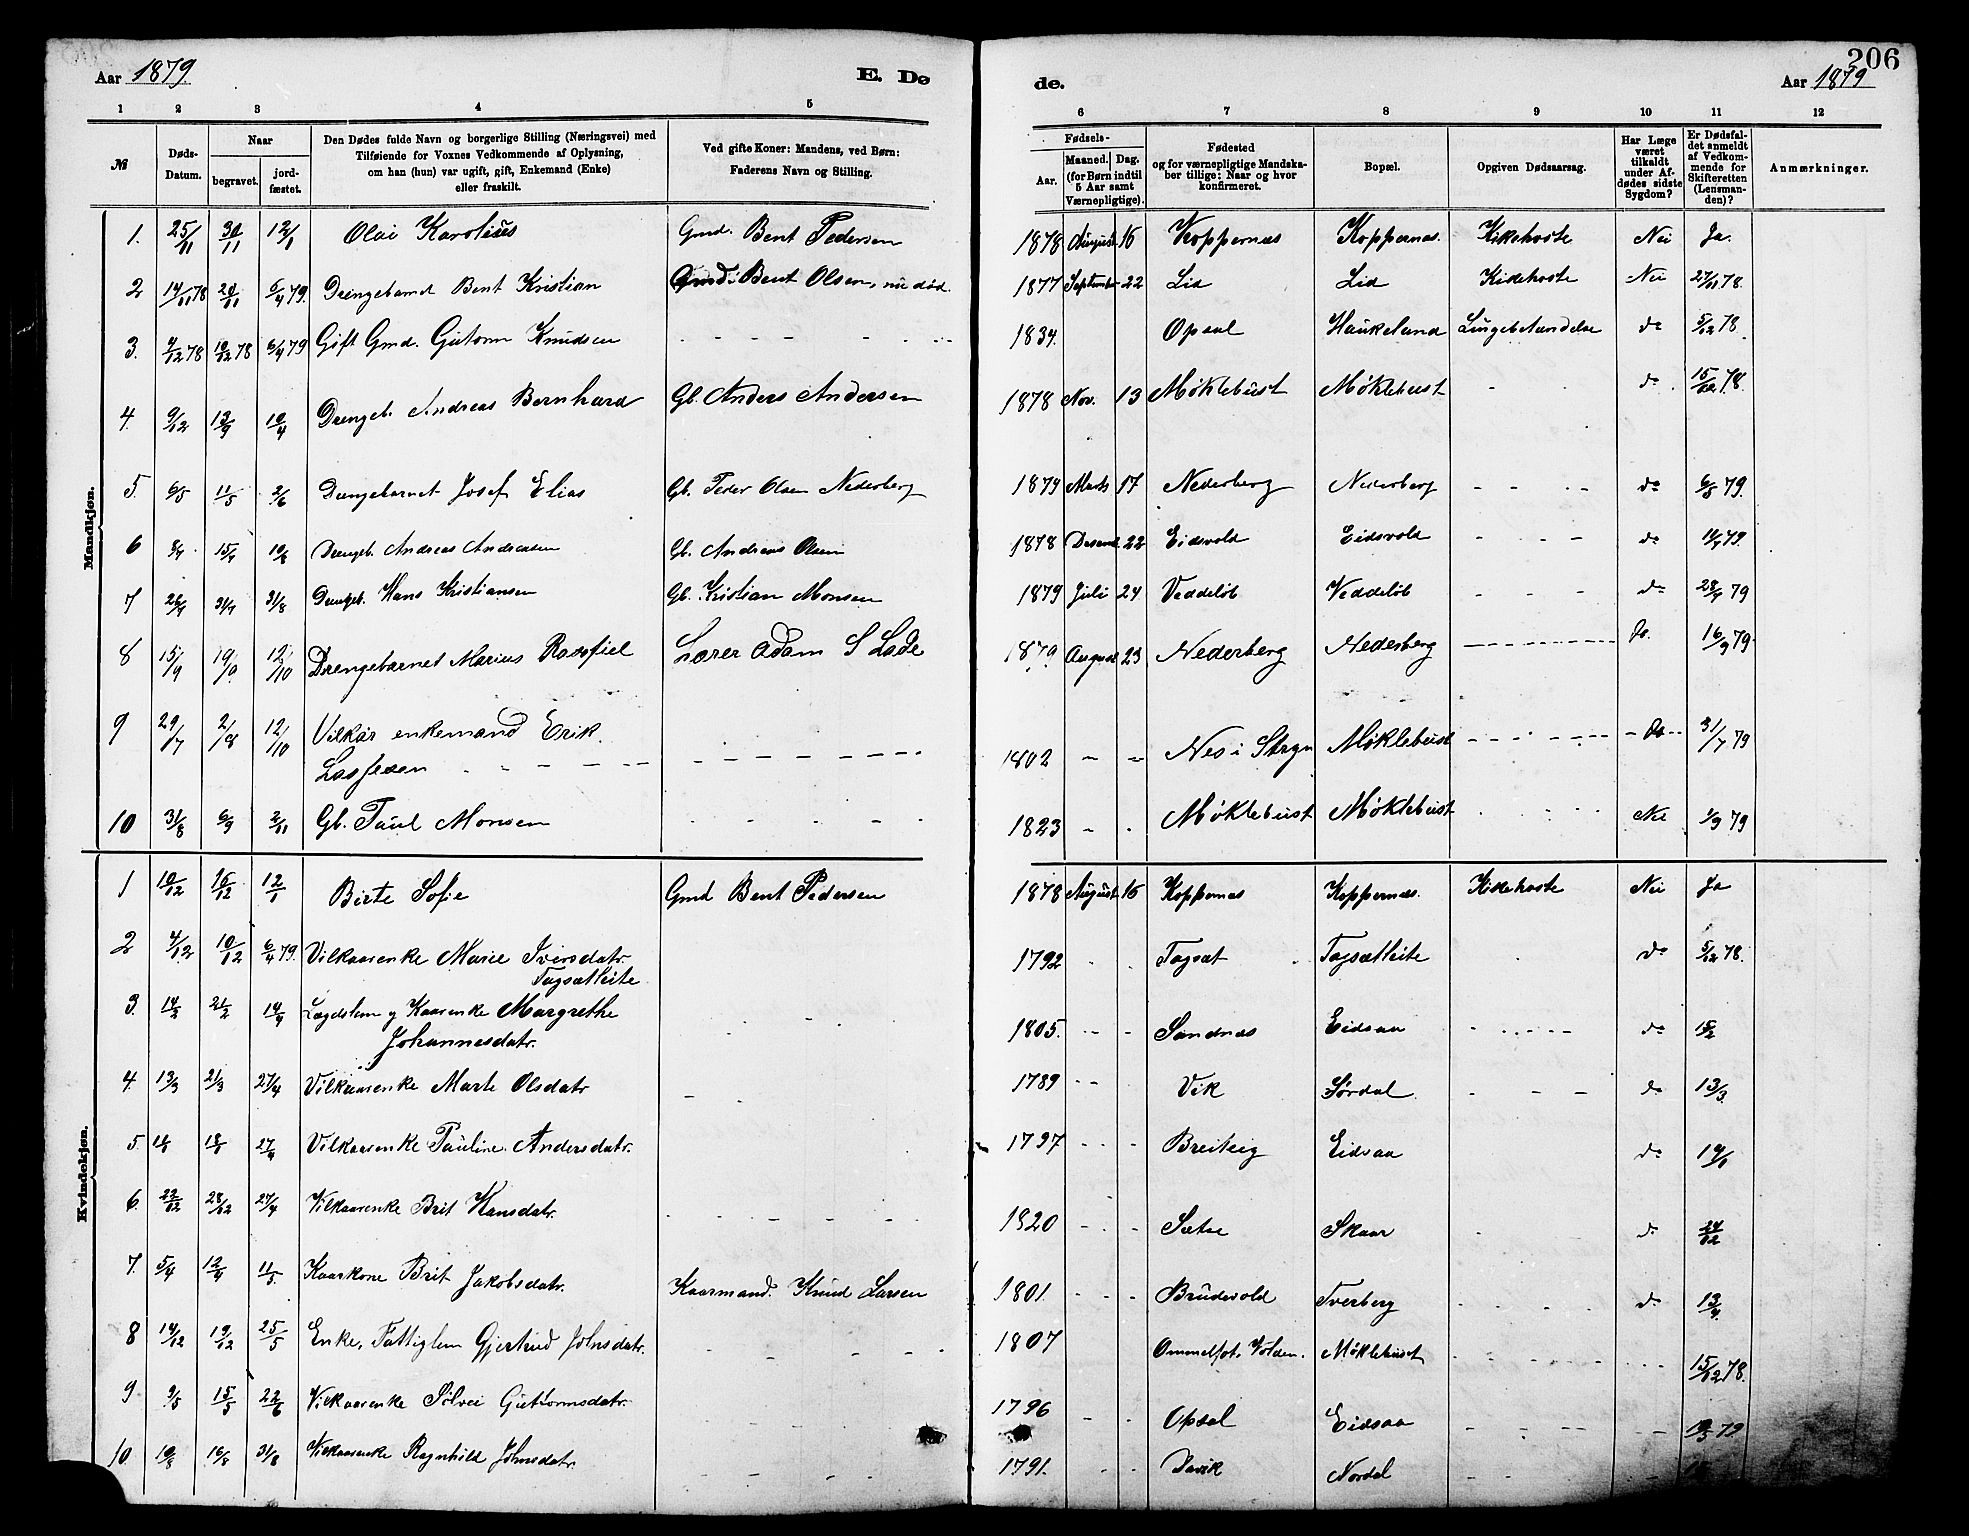 206
Aar 1879
E. Dø
de.
Aar 1879
1 2 3 4 5 6 7 8 9 10 11 12
№
Døds-Datum.
Naar
begravet.
jord-fæstet.
Den Dødes fulde Navn og borgerlige Stilling (Næringsvei) med
Tilføiende for Voxnes Vedkommende af Oplysning,
om han (hun) var ugift, gift, Enkemand (Enke)
eller fraskilt.
Ved gifte Koner: Mandens, ved Børn:
Faderens Navn og Stilling.
Fødsels-
Aar.
Maaned. Dag.
(for Børn indtil
5 Aar samt
Værnepligtige).
Fødested
og for værnepligtige Mandska-
ber tillige: Naar og hvor
konfirmeret.
Bopæl.
Opgiven Dødsaarsag.
Har Læge
været
tilkaldt
under Af-
dødes sidste
Sygdom?
Er Dødsfal-
det anmeldt
af Vedkom-
mende for
Skifteretten
(Lensman-
den)?
Anmærkninger.
Mandkjøn.
1. 25/11 30/11 12/1 Olai Karolius Gmd. Bent Pedersen 1878 August 16 Koppernæs Koppernæs. Kikehoste Nei Ja.
2 14/11 78 20/11 6/4 79. Drengebarnet Bent Kristian Gmd. Bent Olsen, nu død. 1877 September 22 Lid Lid Kidehoste Nei 27/11 78.
3. 4/12 78 10/12 78 6/4 79 Gift Gmd. Gutorm Knudsen 1834. Opsal Haukeland Lungebetændelse do 5/12 78.
4. 9/12 10/4 Drengeb. Andreas Bernhard Gb. Anders Andersen 1878 Nov. 13 Møklebust Møklebust do 15/12 78.
5. 6/5 11/5 2/6 Drengebarnet Josef Elias Gb. Peder Olsen Nederberg 1879 Marts 17 Nederberg Nederberg do 6/5 79.
6 15/4 Drengeb. Andreas Andreasen Gb. Andreas Olsen 1878 Desemb. 22 Eidsvold Eidsvold do
7 26/7 31/7 31/8 Drengeb. Hans Kristiansen Gb. Kristian Monsen 1879 Juli 24 Veddeløb Veddeløb do 28/7 79
8 15/9 12/10 Drengebarnet Marius Rasofiel Lærer Adam S Lade 1879 August 23 Nederberg Nederberg Jo. 16/9 79
9 29/7 2/8 12/10 Vilkår enkemand Erik
Lassesen 1802 Nes i Stryn Møklebust Do 31/7 79
10 31/8 6/9 2/11 Gb. Paul Monsen 1823 Møklebust Møklebust Nei 1/9 79
Kvindekjøn.
1 10/12 16/12 12/1 Birte Sofie Gmd Bent Pedersen 1878 August 16 Koppernæs Koppernæs. Kidehoste Nei Ja
2 4/12 10/12 6/4 79. Vilkaarenke Marie Iversdatr.
Tagsætleite 1792 Tagsæt Tagsætleite do 5/12 78.
3. 14/2 21/2 14/4 Lægdslem og Kaarenke Margrethe
Johannesdatr. 1805. Sandnæs Eidsaa do 15/2
4. 13/3 21/3 27/4 Vilkaarenke Marte Olsdatr 1789 Vik Sørdal. do 13/3.
5. 27/4 Vilkaarenke Pauline Andersdatr. 1797 Breiteig Eidsaa do
6. 22/12 28/12 27/4 Vilkaarenke Brit Hansdatr. 1820 Sætre Skaar do 24/12
7. 5/4 12/4 11/5. Kaarkone Brit Jakobsdatr. Kaarmand. Knud Larsen 1801. Brudevold Tverberg do 13/4.
8 14/12 19/12 25/5 Enke, Fattiglem Gjertrud Johnsdatr. 1807 Ommelfot, Volden. Møklebust 15/12 78.
9 9/5 15/5 22/6 Vilkaarenke Sølvei Guttormsdatr. 1796 Opsal Eidsaa 79
10 10/8 16/8 31/8 Vilkaarenke Ragnhild Johnsdatr. 1791. Davik Nordal